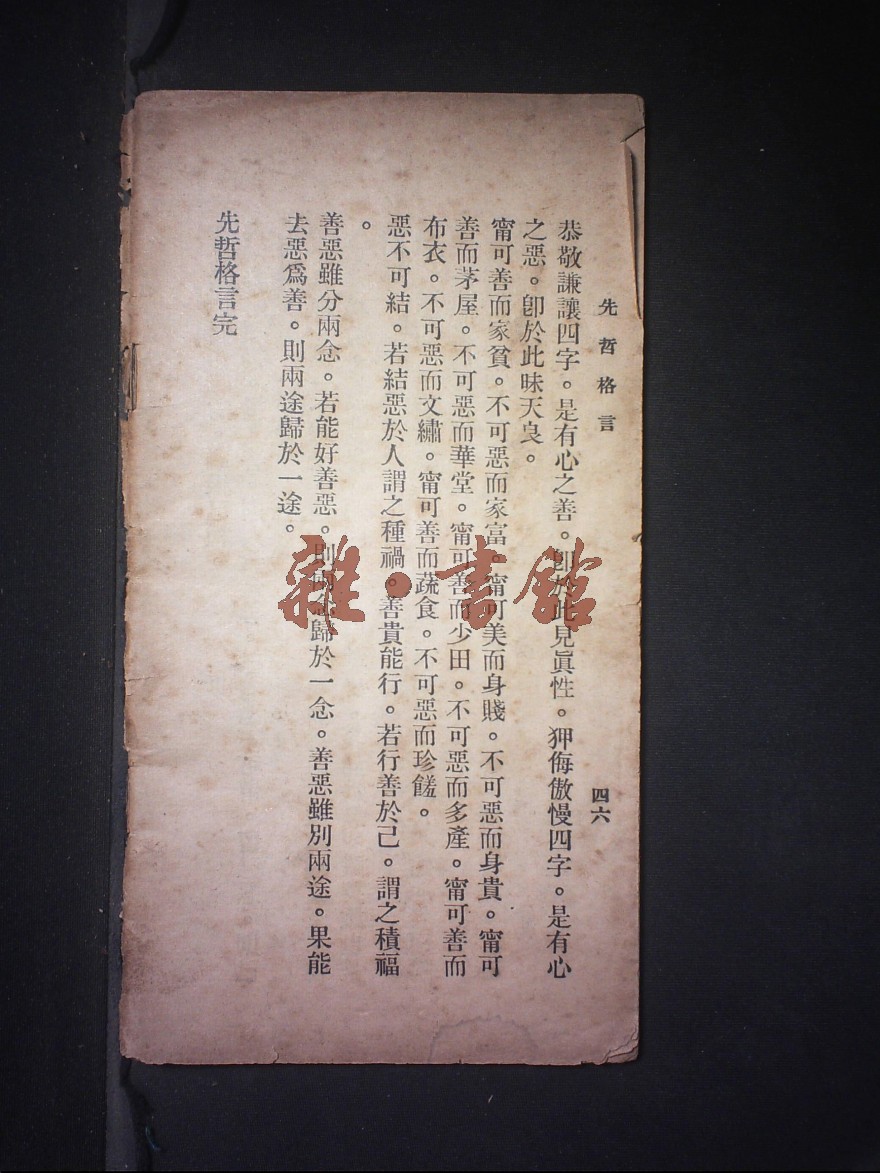 先哲格言
四六
恭敬謙讓四字。是有心之善。卽於此見眞性。狎侮傲慢四字。是有心
之惡。卽於此昧天良。
甯可善而家貧。不可惡而家富。甯可美而身賤。不可惡而身貴。甯可
善而茅屋。不可惡而華堂。甯可善而少田。不可惡而多產。甯可善而
布衣。不可惡而文繡。甯可善而蔬食。不可惡而珍饈。
惡不可結。若結惡於人謂之種禍。善貴能行。若行善於己。謂之積福
。
善惡雖分兩念。若能好善惡。則兩念歸於一念。善惡雖別兩途。果能
去惡爲善。則兩途歸於一途。
先哲格言完
雜·書館